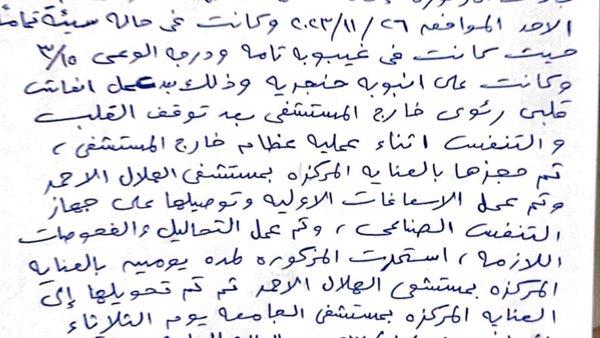 الاحد الموافقه ٢٠٢٣/١١/٢٦ وكانت في حاله سيئة تماما
حيث كانت في غيبوبه تامه ودرجه الوعى ٣/١٥
وكانت على انبوبه حنجريه وذلك بعد عمل انعاش
قلبى رئوى خارج المستشفى بعد توقف القلب
والتنفس اثناء عمليه عظام خارج المستشفى ،
تم حجزها بالعنايه المركزه بمستشفى الهلال الاحمر
وتم عمل الاسعافات الاوليه وتوصيلها على جهاز
التنفس الصناعى ، وتم عمل التحاليل والفحوصات
اللازمه ، استمرت المزكوره لمده يومين بالعنايه
المركزه بمستشفى الهلال الاحمر ثم تم تحويلها إلى
العنايه المركزه بمستشفى الجامعه يوم الثلاثاء